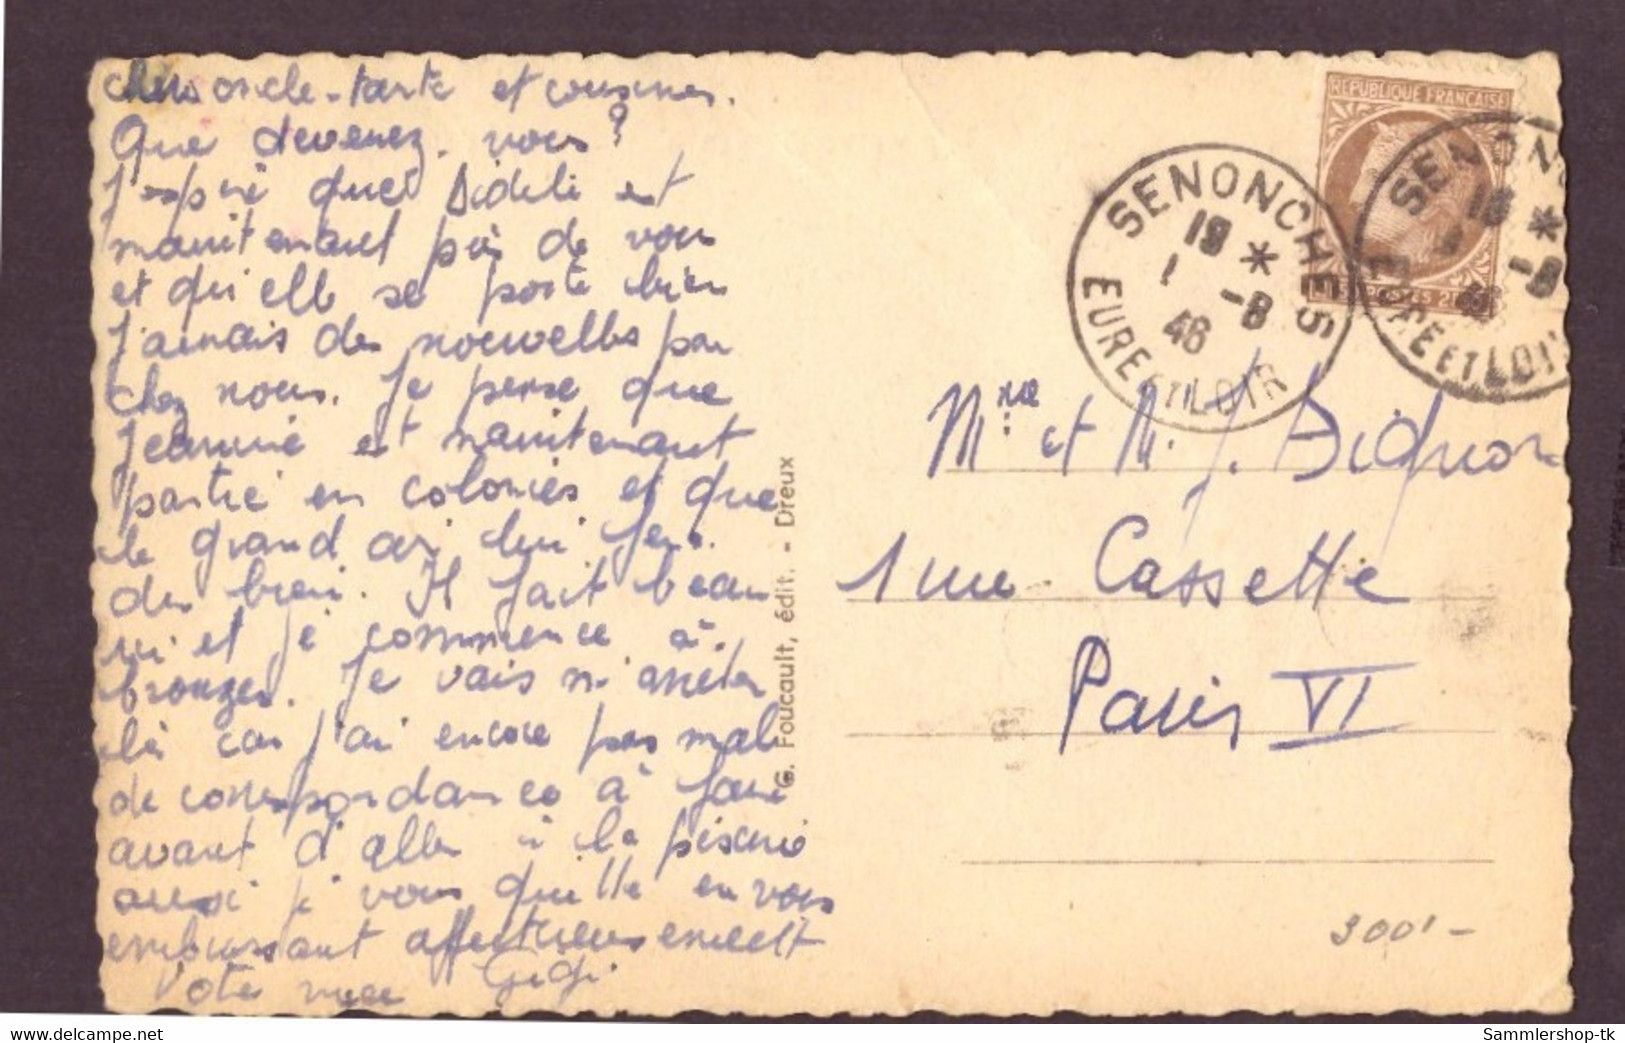 chers oncle-tante et cousines.
Que devenez-vous ?
J'espère que Didili est
maintenant près de vous
et qu'elle se porte bien
Jamais de nouvelles par
chez nous. Je pense que
Jeannine est maintenant
partie en colonies et que
le grand air lui fera
du bien. Il fait beau
ici et je commence à
bronzer. Je vais m'arrêter
là car j'ai encore pas mal
de correspondance à faire
avant d'aller à la piscine
aussi je vous quitte en vous
embrassant affectueusement
Votre nièce Gigi
G. Foucault, édit. - Dreux
REPUBLIQUE FRANÇAISE
SENONCHES
19 *
1 -8
46
EURE ET LOIR
SENON
18 *
1 -8
46
EURE ET LOIR
Mme et M. J. Dignon
1 rue Cassette
Paris VI
300F-
www.delcampe.net
Sammlershop-tk